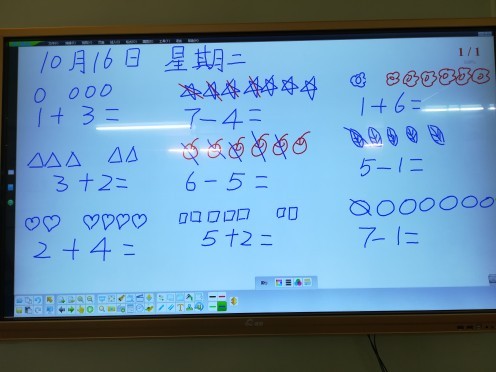 10月16日 星期二
1/1
1+3=
7-4=
1+6=
3+2=
6-5=
5-1=
2+4=
5+2=
7-1=